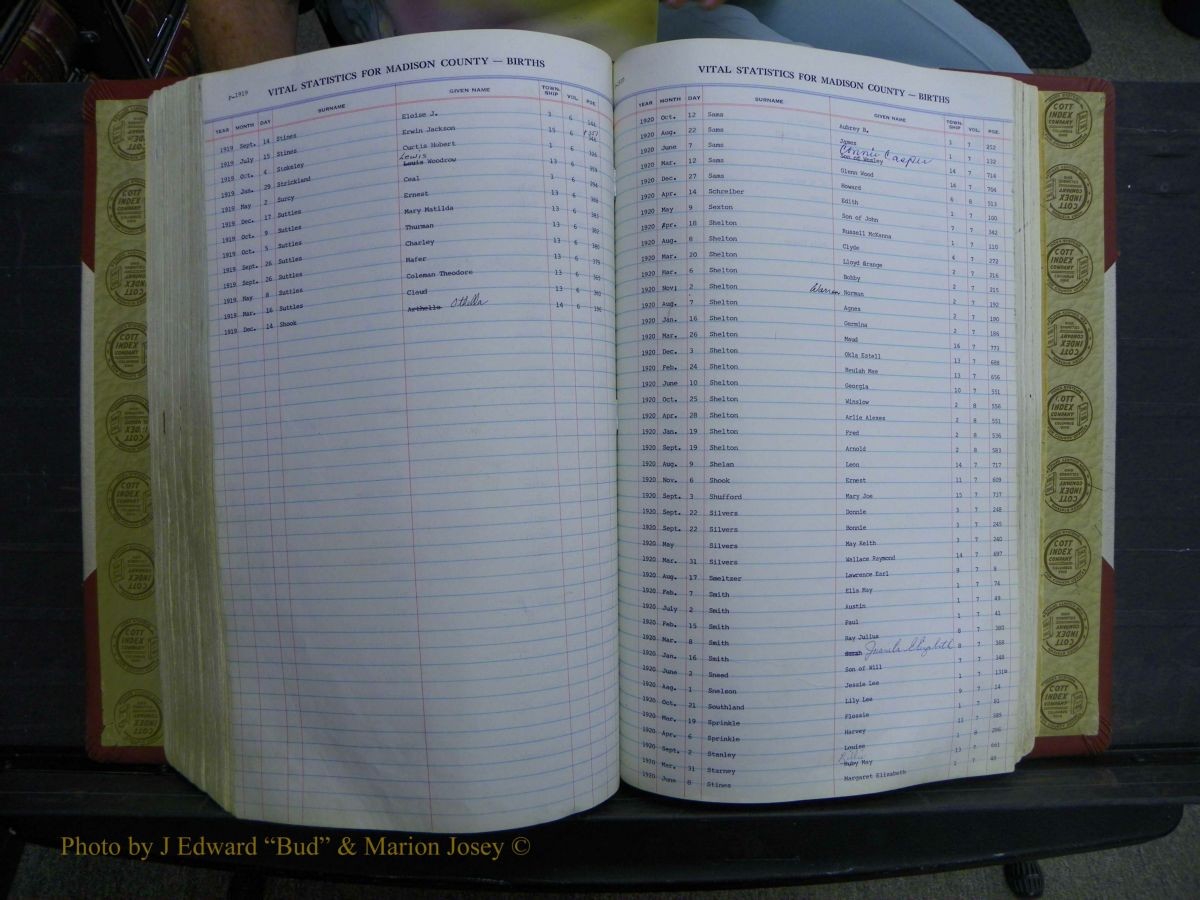 P-1919 VITAL STATISTICS FOR MADISON COUNTY — BIRTHS
YEAR MONTH DAY SURNAME GIVEN NAME TOWN-SHIP VOL. PGE.
1919 Sept. 14 Stines Eloise J. 3 6
1919 July 15 Stines Erwin Jackson 15 6
1919 Oct. 4 Stoksley Curtis Hobert 1 6
1919 Jan. 29 Strickland Lewis Louis Woodrow 13 6
1919 May 2 Surcy Ceal 1 6
1919 Dec. 17 Suttles Ernest 13 6
1919 Oct. 9 Suttles Mary Matilda 13 6
1919 Oct. 5 Suttles Thurman 13 6
1919 Sept. 26 Suttles Charley 13 6
1919 Sept. 26 Suttles Mafer 13 6
1919 May 8 Suttles Coleman Theodore 13 6
1919 Mar. 16 Suttles Claud 13 6
1919 Dec. 14 Shook Arthella Othella 14 6
VITAL STATISTICS FOR MADISON COUNTY — BIRTHS
YEAR MONTH DAY SURNAME GIVEN NAME TOWN-SHIP VOL. PGE.
1920 Oct. 12 Sams Aubrey B. 3 7 212
1920 Aug. 22 Sams James 1 7 132
1920 June 7 Sams Connie Casper Son of Wesley 14 7 716
1920 Mar. 12 Sams Glenn Wood 16 7 704
1920 Dec. 27 Sams Howard 6 8 513
1920 Apr. 14 Schreiber Edith 1 7 100
1920 May 9 Sexton Son of John 7 7 342
1920 Apr. 18 Shelton Russell McKanna 1 7 110
1920 Aug. 8 Shelton Clyde 4 7 272
1920 Mar. 20 Shelton Lloyd Grange 2 7 216
1920 Mar. 6 Shelton Bobby 2 7 215
1920 Nov. 2 Shelton Warren Norman 2 7 192
1920 Aug. 7 Shelton Agnes 2 7 190
1920 Jan. 16 Shelton Germina 2 7 186
1920 Mar. 26 Shelton Maud 16 7 773
1920 Dec. 3 Shelton Okla Estell 13 7 688
1920 Feb. 24 Shelton Beulah Mae 13 7 656
1920 June 10 Shelton Georgia 10 7 551
1920 Oct. 25 Shelton Winslow 2 8 556
1920 Apr. 28 Shelton Arlie Alexes 2 8 551
1920 Jan. 19 Shelton Fred 2 8 536
1920 Sept. 19 Shelton Arnold 2 8 583
1920 Aug. 9 Shelan Leon 14 7 717
1920 Nov. 6 Shook Ernest 11 7 609
1920 Sept. 3 Shufford Mary Joe 15 7 737
1920 Sept. 22 Silvers Donnie 3 7 248
1920 Sept. 22 Silvers Bonnie 3 7 245
1920 May Silvers May Keith 3 7 240
1920 Mar. 31 Silvers Wallace Raymond 14 7 697
1920 Aug. 17 Smeltzer Lawrence Earl 9 7
1920 Feb. 7 Smith Ella May 1 7 74
1920 July 2 Smith Austin 1 7 49
1920 Feb. 15 Smith Paul 1 7 41
1920 Mar. 8 Smith Ray Julius 8 7 380
1920 Jan. 16 Smith Sarah Elizabeth 8 7 368
1920 June 2 Sneed Son of Will 7 7 348
1920 Aug. 1 Snelson Jessie Lee 1 7
1920 Oct. 21 Southland Lily Lee 9 7 14
1920 Mar. 19 Sprinkle Flossie 1 7 81
1920 Apr. 6 Sprinkle Harvey 11 7 589
1920 Sept. 2 Stanley Louise 1 8 286
1920 Mar. 31 Starney Ruby May 13 7 661
1920 June 8 Stines Margaret Elizabeth 1 7 48
COTT INDEX COMPANY COLUMBUS OHIO
Photo by J Edward “Bud” & Marion Josey ©